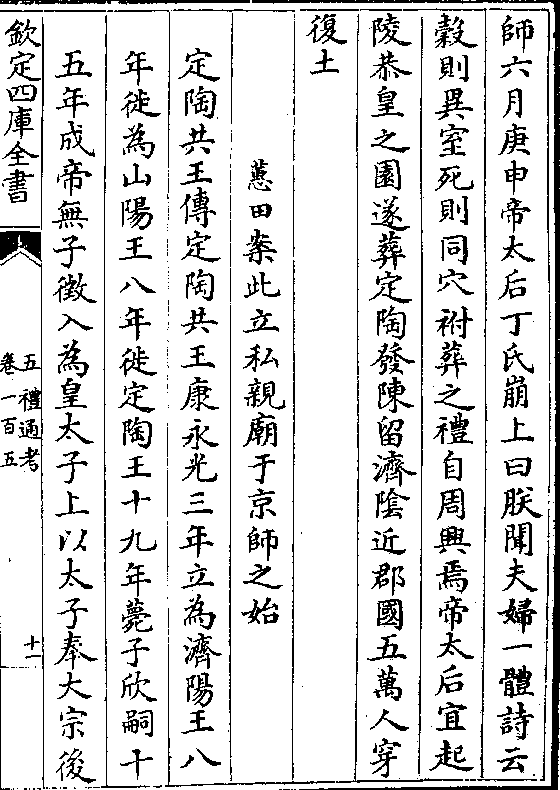 師六月庚申帝太后丁氏崩上曰朕聞夫婦一體詩云
榖則異室死則同穴祔葬之禮自周興焉帝太后宜起
陵恭皇之園遂葬定陶發陳留濟隂近郡國五萬人穿
復土
蕙田案此立私親廟于京師之始
定陶共王傳定陶共王康永光三年立為濟陽王八
年徙為山陽王八年徙定陶王十九年薨子欣嗣十
五年成帝無子徴入為皇太子上以太子奉大宗後
欽定四庫全書
五禮通考
卷一百五
十一